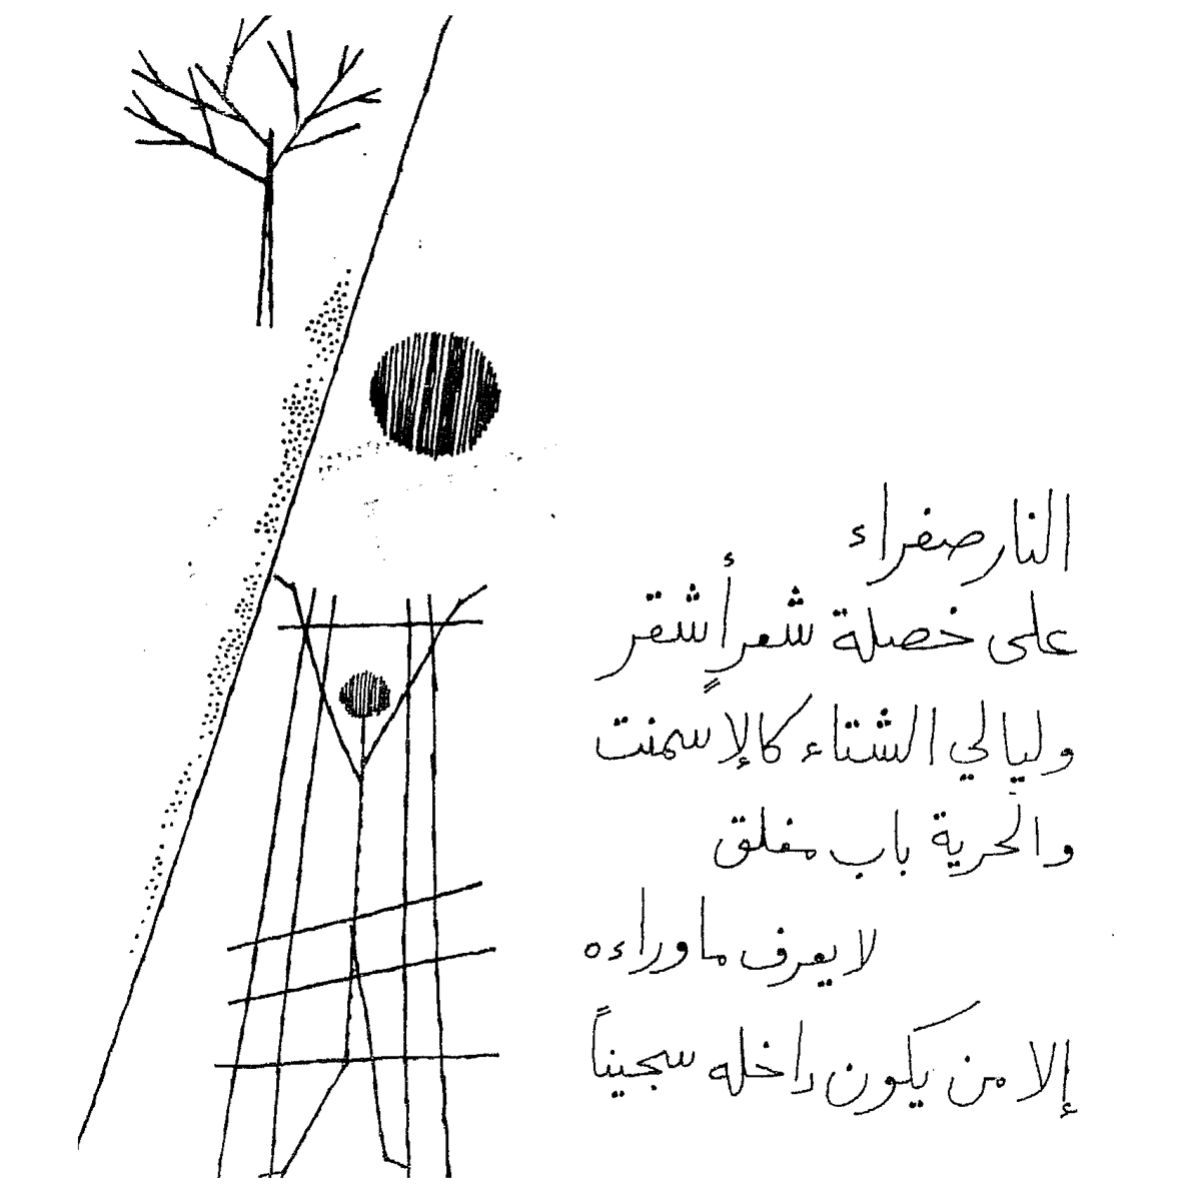 النار صفراء
على خصلة شعرٍ أشقر
وليالي الشتاء كالإسمنت
والحرية باب مغلق
لا يعرف ما وراءه
إلا من يكون داخله سجيناً